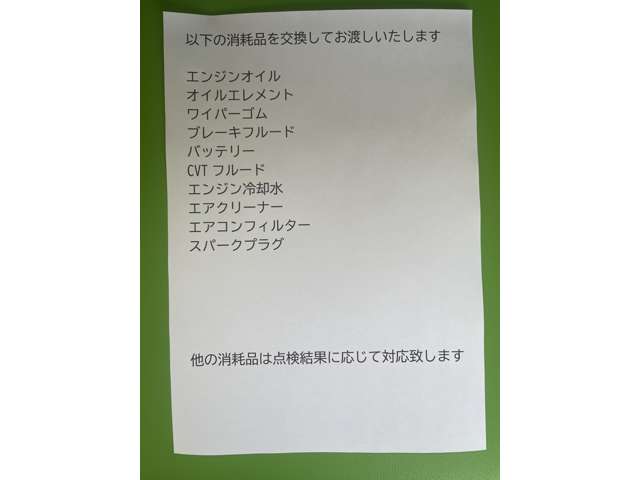 以下の消耗品を交換してお渡しいたします
エンジンオイル
オイルエレメント
ワイパーゴム
ブレーキフルード
バッテリー
CVTフルード
エンジン冷却水
エアクリーナー
エアコンフィルター
スパークプラグ
他の消耗品は点検結果に応じて対応致します